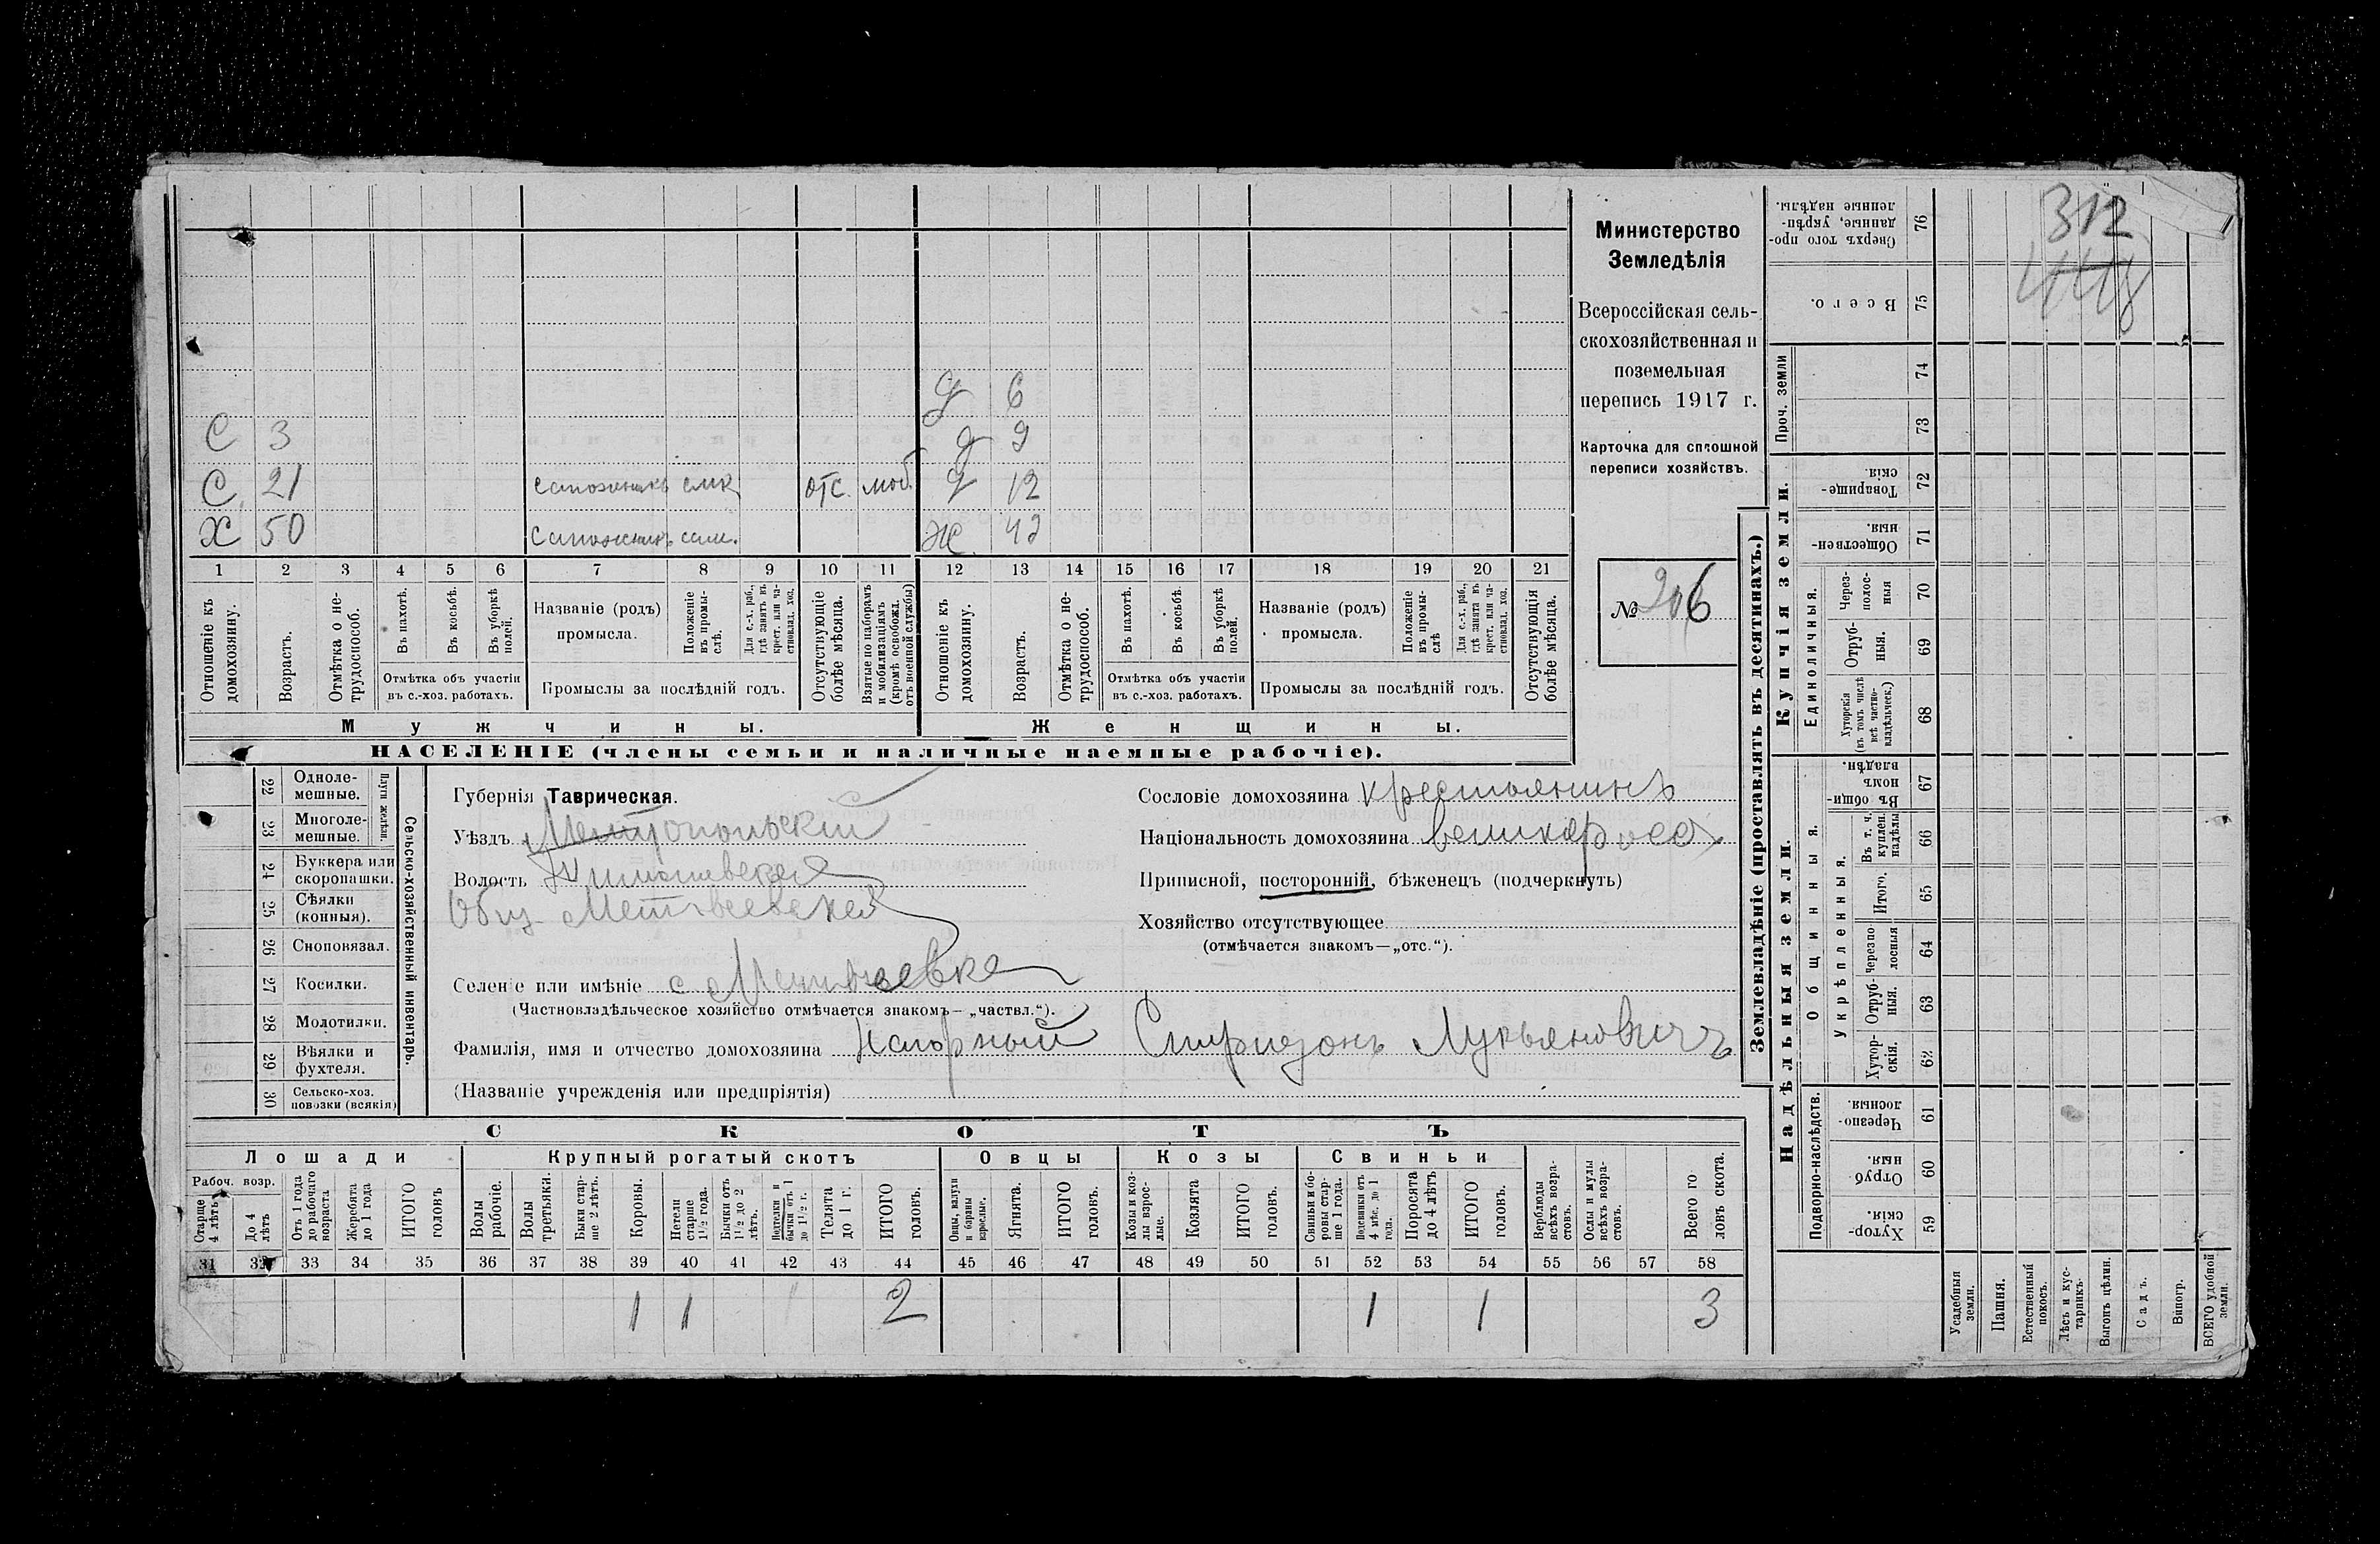 312
448
Министерство
Земледѣлія
Всероссійская сель-
скохозяйственная и
поземельная
перепись 1917 г.
Карточка для сплошной
переписи хозяйствъ.
№ 206
Д 6
С 3 Д 9
С 21 сапожникъ отс. моб. Д 12
Х 50 Сапожникъ Ж 42
1 2 3 4 5 6 7 8 9 10 11 12 13 14 15 16 17 18 19 20 21
Отношеніе къ домохозяину.
Возрастъ.
Отмѣтка о не-трудоспособ.
Въ пахотѣ.
Въ косьбѣ.
Въ уборкѣ полей.
Отмѣтка объ участіи въ с.-хоз. работахъ.
Названіе (родъ) промысла.
Положеніе въ промы-слѣ.
Для с.-х. раб., гдѣ занятъ въ крест. или ча-стновлад. хоз.
Промыслы за послѣдній годъ.
Отсутствующіе болѣе мѣсяца.
Взятые по наборамъ и мобилизаціямъ (кромѣ освобожд. отъ военной службы)
Отношеніе къ домохозяину.
Возрастъ.
Отмѣтка о не-трудоспособ.
Въ пахотѣ.
Въ косьбѣ.
Въ уборкѣ полей.
Отмѣтка объ участіи въ с.-хоз. работахъ.
Названіе (родъ) промысла.
Положеніе въ промы-слѣ
Для с.-х. раб., гдѣ занята въ крест. или ча-стновлад. хоз.
Промыслы за послѣдній годъ.
Отсутствующія болѣе мѣсяца.
Мужчины. Женщины.
НАСЕЛЕНІЕ (члены семьи и наличные наемные рабочіе).
22 Одноле-мешные.
23 Многоле-мешные.
Плуги желѣзн.
24 Буккера или скоропашки.
25 Сѣялки (конныя).
26 Сноповязал.
27 Косилки.
28 Молотилки.
29 Вѣялки и фухтеля.
30 Сельско-хоз. повозки (всякія)
Сельско-хозяйственный инвентарь.
Губернія Таврическая.
Уѣздъ Мелитопольскій
Волость
Общ. Матвеевской
Селеніе или имѣніе с Матвеевка
(Частновладѣльческое хозяйство отмѣчается знакомъ— „частвл.“).
Фамилія, имя и отчество домохозяина Нагорный Спиридонъ Лукьяновичъ
(Названіе учрежденія или предпріятія)
Сословіе домохозяина крестьянинъ
Національность домохозяина великоросс
Приписной, посторонній, бѣженецъ (подчеркнуть)
Хозяйство отсутствующее
(отмѣчается знакомъ—„отс.“).
СКОТЪ
Лошади Крупный рогатый скотъ Овцы Козы Свиньи
Рабоч. возр.
Старше 4 лѣтъ
До 4 лѣтъ
Отъ 1 года до рабочаго возраста
Жеребята до 1 года
ИТОГО головъ
Волы рабочіе.
Волы третьяки.
Быки стар-ше 2 лѣтъ.
Коровы.
Нетели старше 1½ года.
Бычки отъ 1½ до 2 лѣтъ.
Подтелки и бычки отъ 1 до 1½ г.
Телята до 1 г.
ИТОГО головъ.
Овцы, валухи и бараны взрослые.
Ягнята.
ИТОГО головъ.
Козы и коз-лы взрос-лые.
Козлята
ИТОГО головъ.
Свиньи и бо-ровы стар-ше 1 года.
Подсвинки отъ 4 мѣс. до 1 года.
Поросята до 4 лѣтъ
ИТОГО головъ.
Верблюды всѣхъ возра-стовъ.
Ослы и мулы всѣхъ возра-стовъ.
Всего го ловъ скота.
31 32 33 34 35 36 37 38 39 40 41 42 43 44 45 46 47 48 49 50 51 52 53 54 55 56 57 58
1 1 2 1 1 3
Землевладѣніе (проставлять въ десятинахъ.)
Купчія земли.
Надѣльныя земли.
Проч. земли
Единоличныя.
Общинныя.
Укрѣпленныя.
Подворно-наслѣдств.
76 Сверхъ того про-данные, укрѣп-ленные надѣлы.
75 Всего.
74
73
72 Товарище-скія.
71 Обществен-ныя.
70 Через-полос-ныя
69 Отруб-ныя.
68 Хуторскія (въ томъ числѣ всѣ частно-владѣльческ.)
67 Въ общи-номъ владѣн.
66 Въ т. ч. куплен. надѣлы
65 Итого.
64 Черезпо-лосныя
63 Отруб-ныя.
62 Хутор-скія.
61 Черезпо-лосныя.
60 Отруб ныя.
59 Хутор-скія.
Усадебныя земли.
Пашня.
Естественный покосъ.
Лѣсъ и кус-тарникъ.
Выгонъ цѣлин.
Садъ.
Виногр.
ВСЕГО удобной земли.